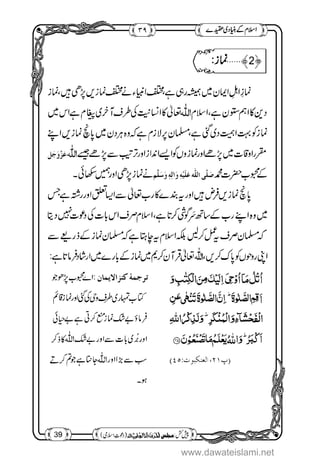 اسلام کے بنیادی عقیدے ۳۹
﴿2﴾……نماز:
اہلِ ایمان میں ہمیشہ یہی رہا ہے، مختلف انبیاء نے مختلف نمازیں پڑھی ہیں، نماز،
دین کا اہم ستون ہے، اسلام، اللہ تعالیٰ کا انسانیت کی طرف آخری پیغام ہے اس میں
نماز کو بہت اہمیت دی گئی ہے، مسلمان پر لازم ہے کہ وہ ہر دن میں پانچ نمازیں اپنے
مقررہ اوقات میں پڑھے اور نمازوں کو ایسے انداز اور ترتیب سے پڑھے جیسے اللہ عَزَّوَجَلَّ
کے محبوب محمد صلی اللہ علیہ واٰلہٖ وسلّم نے نماز پڑھی اور ہمیں سکھائی۔
پانچ نمازیں فرض ہیں اور یہ بندے کا رب تعالیٰ سے ایسا تعلق اور رشتہ ہے جس
میں وہ اپنے رب کے ساتھ سرگوشی کرتا ہے، اسلام، صرف اسی بات کی دعوت نہیں دیتا
کہ مسلمان صرف یہ عمل کرلیں بلکہ اسلام یہ چاہتا ہے کہ مسلمان نماز کے ذریعے سے
اپنی روحوں کو پاک کریں، اللہ تعالیٰ قرآنِ کریم میں نماز کے بارے میں ارشاد فرماتا ہے:
اُتْلُ مَاۤ اُوْحِیَ اِلَیْكَ مِنَ الْكِتٰبِ وَ
اَقِمِ الصَّلٰوةَؕ اِنَّ الصَّلٰوةَ تَنْهٰى عَنِ
الْفَحْشَآءِ وَ الْمُنْكَرِؕ وَ لَذِكْرُ اللّٰهِ
اَكْبَرُؕ وَ اللّٰهُ یَعْلَمُ مَا تَصْنَعُوْنَ
(پ ۲۱، العنکبوت: ۴۵)
ترجمۂ کنز الایمان: اے محبوب پڑھو جو
کتاب تمہاری طرف وحی کی گئی اور نماز قائم
فرماؤ بے شک نماز منع کرتی ہے بے حیائی
اور بُری بات سے اور بے شک اللہ کا ذکر
سب سے بڑا اور اللہ جانتا ہے جو تم کرتے
ہو۔
39
www.dawateislami.net